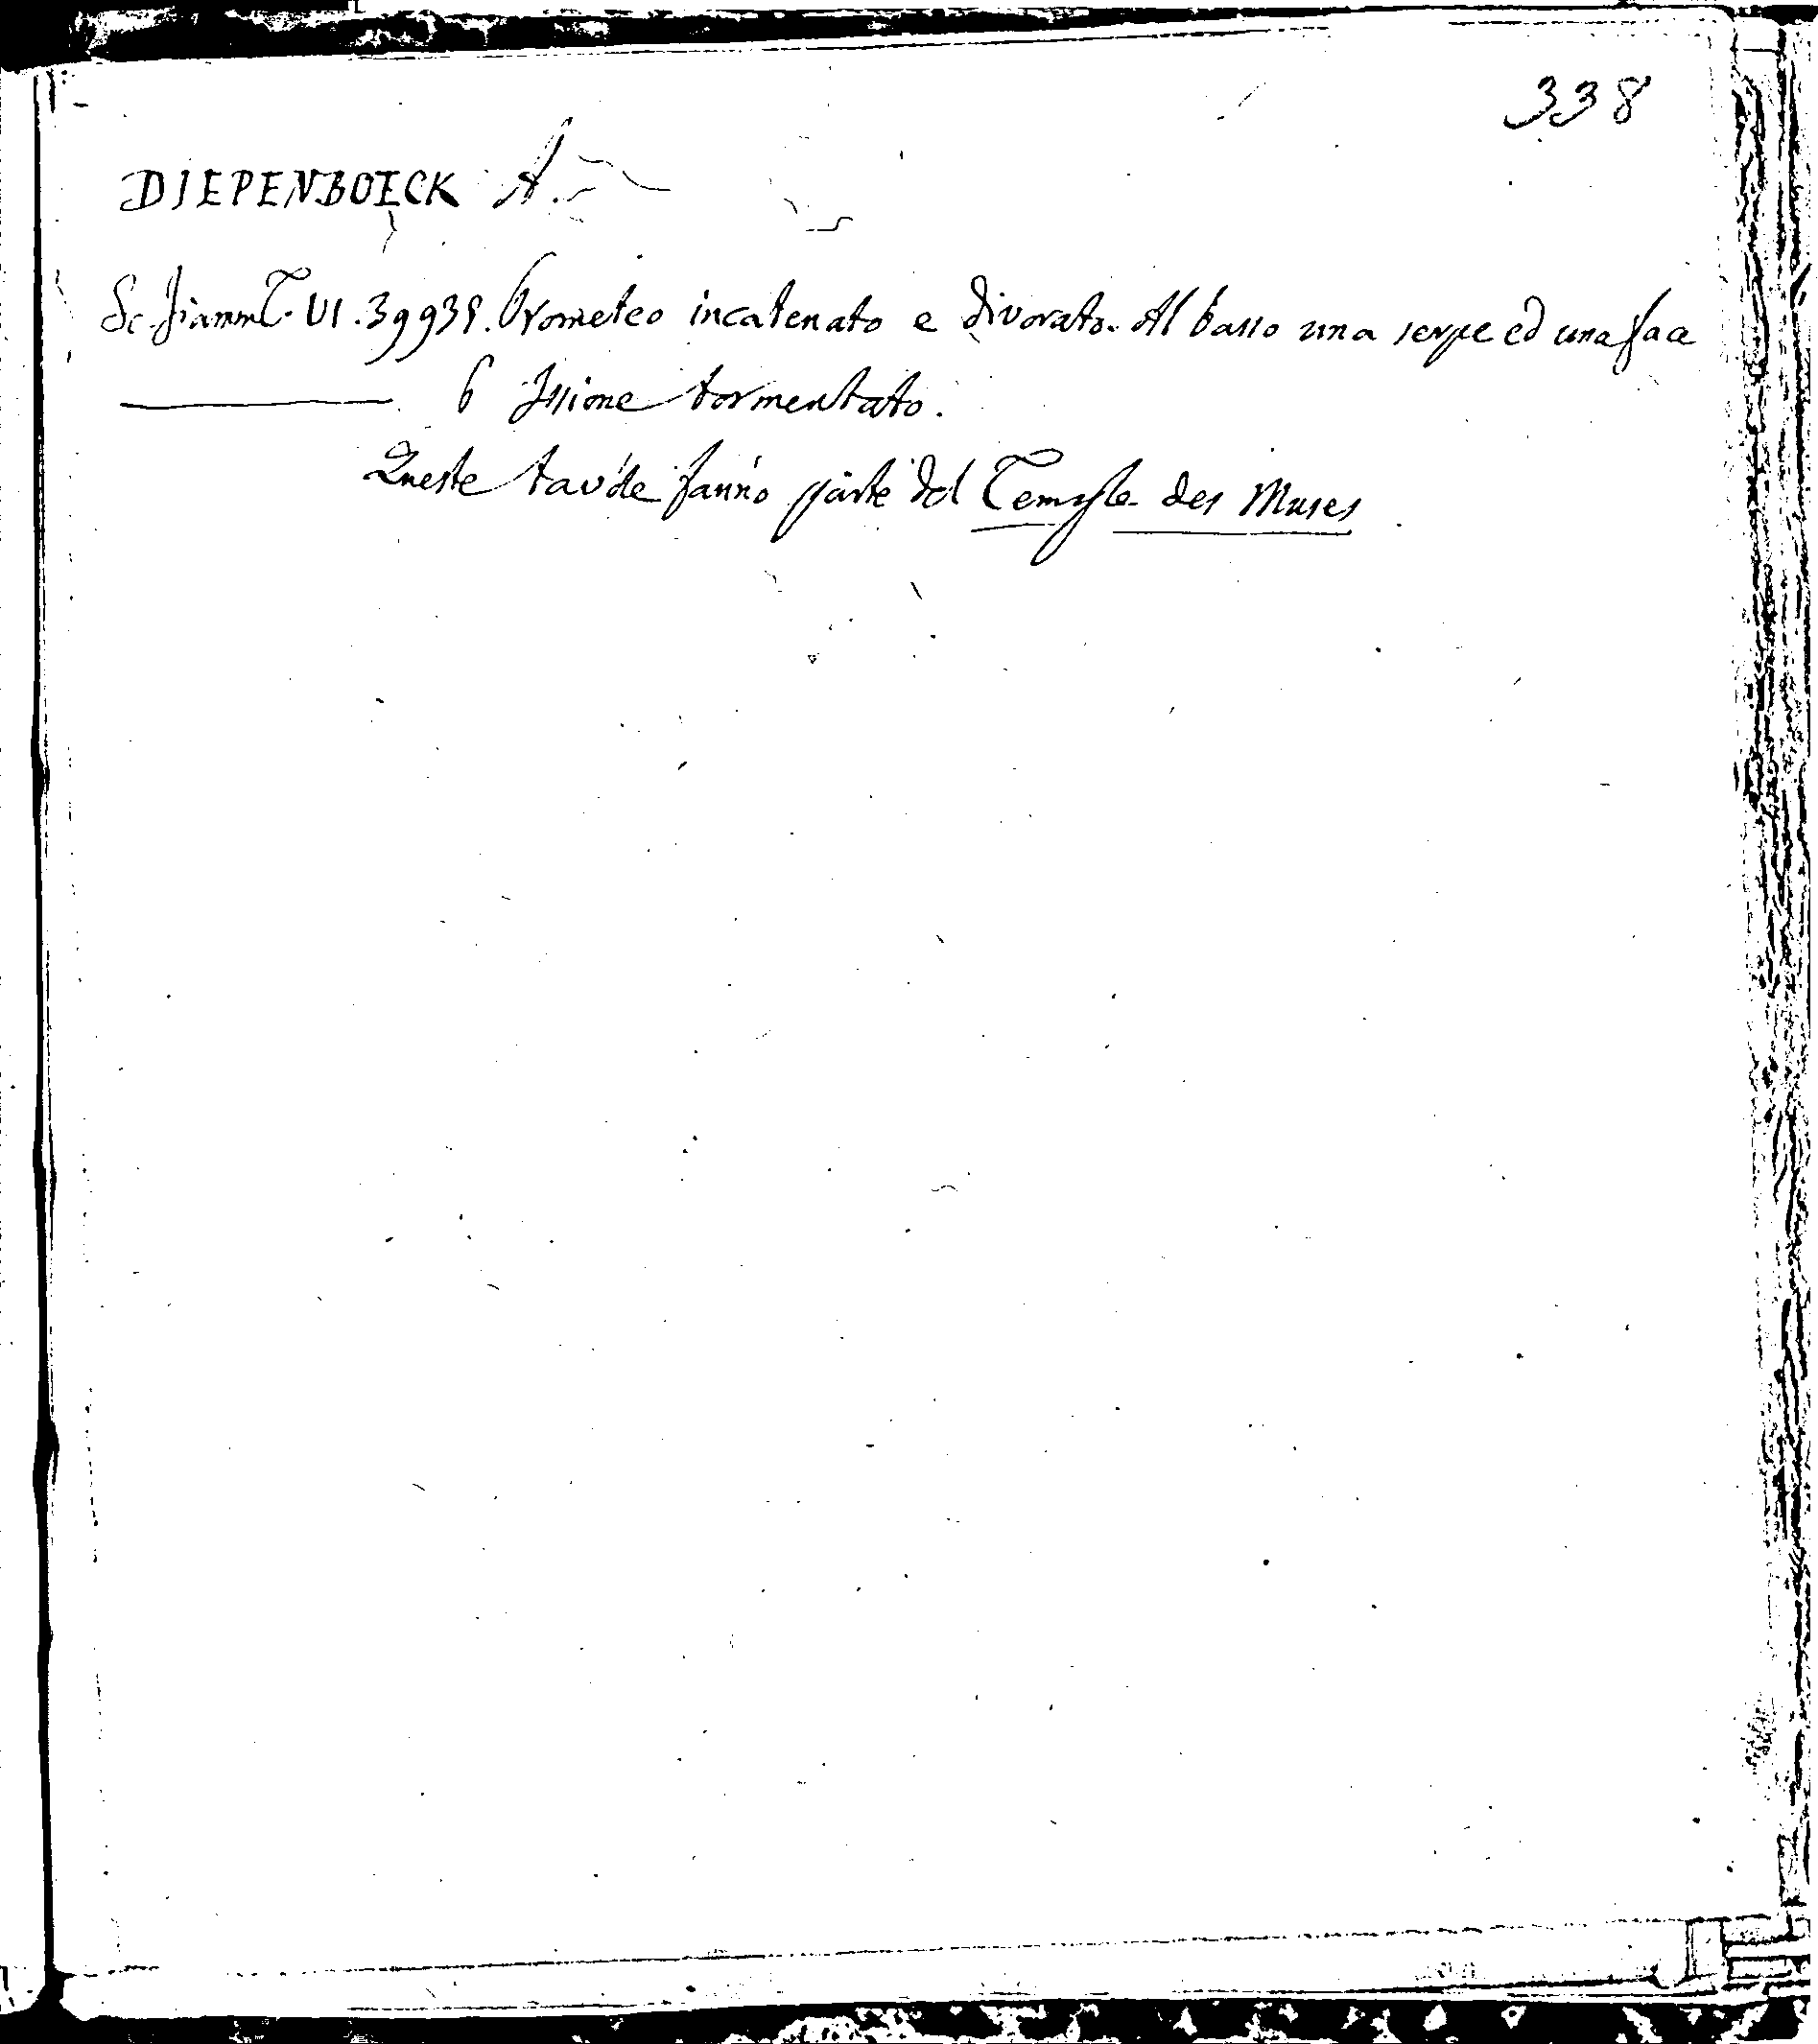 338
DIEPENBOECK A.
Sc. fiamm. T. VI. 39935. Prometeo incatenato e divorato. Al basso una serpe ed una face
——— 6 Issione tormentato.
Queste tavole fanno parte del Temple des Muses